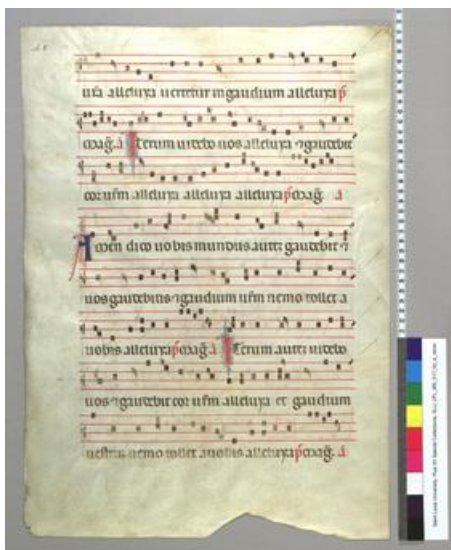 ur̄a alleluya uertetur in gaudium alleluya p̄
mag̃. a Iterum uidebo uos alleluya ⁊ gaudebit
cor ur̄m alleluya alleluya alleluya p̄ mag̃. a
Amen dico uobis mundus autē gaudebit ⁊
uos gaudebitis ⁊ gaudium ur̄m nemo tollet a
uobis alleluya p̄ mag̃. a Iterum autē uidebo
uos ⁊ gaudebit cor ur̄m alleluya et gaudium
uestrū nemo tollet a uobis alleluya p̄ mag̃. a
Saint Louis University, Pius XII Special Collections,